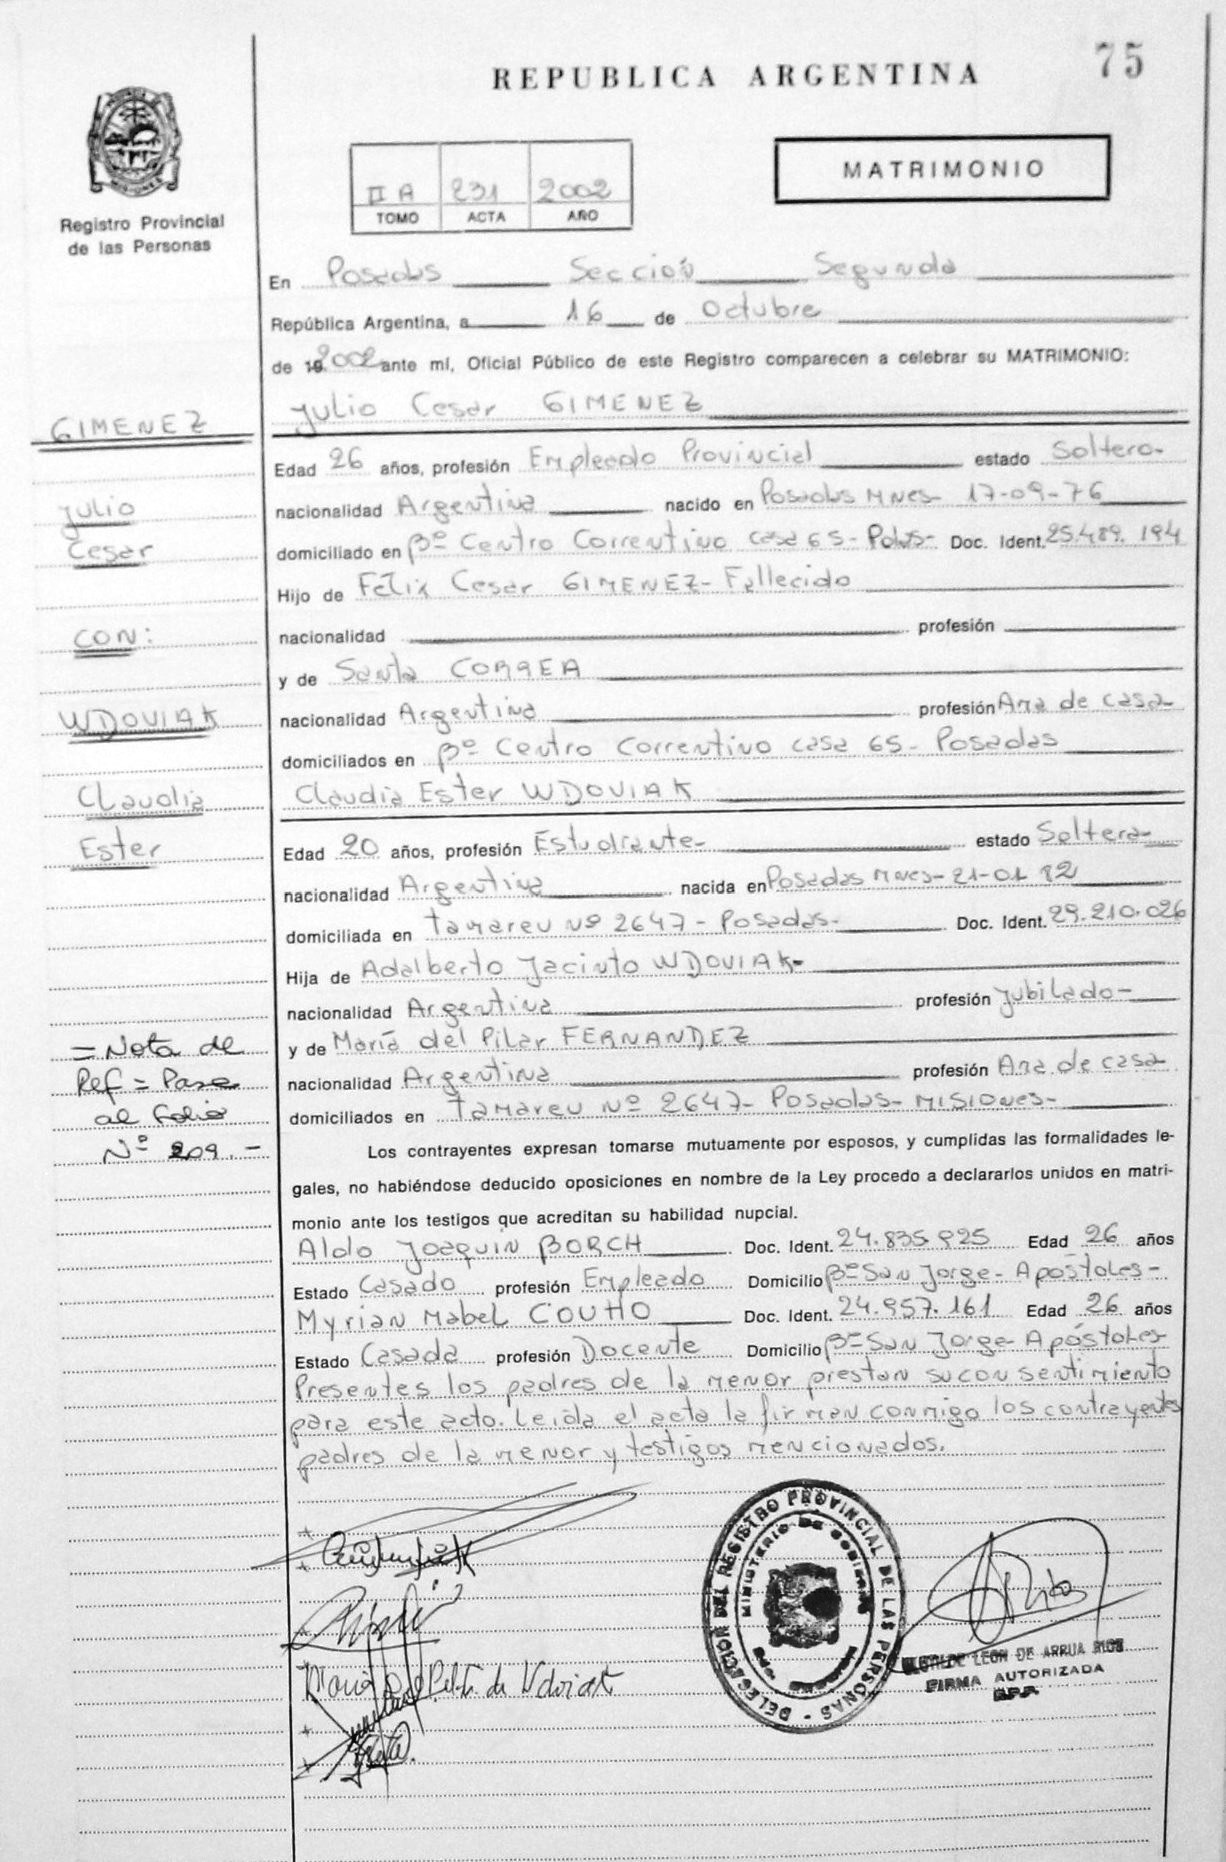 75
REPUBLICA ARGENTINA
MISIONES
Registro Provincial
de las Personas
II A 231 2002
TOMO ACTA AÑO
MATRIMONIO
En Posadas Sección Segunda
República Argentina, a 16 de Octubre
de 19 2002 ante mí, Oficial Público de este Registro comparecen a celebrar su MATRIMONIO:
Julio Cesar GIMENEZ
GIMENEZ
Edad 26 años, profesión Empleado Provincial estado Soltero-
Julio
nacionalidad Argentina nacido en Posadas Mnes- 17-09-76
Cesar
domiciliado en Bº Centro Correntino casa 65- Pdas- Doc. Ident. 25.489.194
Hijo de Felix Cesar GIMENEZ- Fallecido
CON:
nacionalidad profesión
y de Santa CORREA
WDOVIAK
nacionalidad Argentina profesión Ama de casa-
domiciliados en Bº Centro Correntino casa 65- Posadas
Claudia
Claudia Ester WDOVIAK
Ester
Edad 20 años, profesión Estudiante- estado Soltera-
nacionalidad Argentina nacida en Posadas Mnes- 21-01 82
domiciliada en Tamareu Nº 2647- Posadas- Doc. Ident. 29.210.026
Hija de Adalberto Jacinto WDOVIAK-
nacionalidad Argentina profesión Jubilado-
= Nota de
y de María del Pilar FERNANDEZ
Ref = Pase
nacionalidad Argentina profesión Ama de casa
al folio
domiciliados en Tamareu Nº 2647- Posadas- MISIONES-
Nº 209.-
Los contrayentes expresan tomarse mutuamente por esposos, y cumplidas las formalidades le-
gales, no habiéndose deducido oposiciones en nombre de la Ley procedo a declararlos unidos en matri-
monio ante los testigos que acreditan su habilidad nupcial.
Aldo Joaquin BORCH Doc. Ident. 24.835.925 Edad 26 años
Estado Casado profesión Empleado Domicilio Bº San Jorge- Apóstoles-
Myrian Mabel COUTO Doc. Ident. 24.957.161 Edad 26 años
Estado Casada profesión Docente Domicilio Bº San Jorge- Apóstoles-
Presentes los padres de la menor prestan su consentimiento
para este acto. Leida el acta la firman conmigo los contrayentes
padres de la menor y testigos mencionados.
DELEGACION DEL REGISTRO PROVINCIAL DE LAS PERSONAS -
MINISTERIO DE GOBIERNO
LEON DE ARRUA RIOS
FIRMA AUTORIZADA
R.P.P.